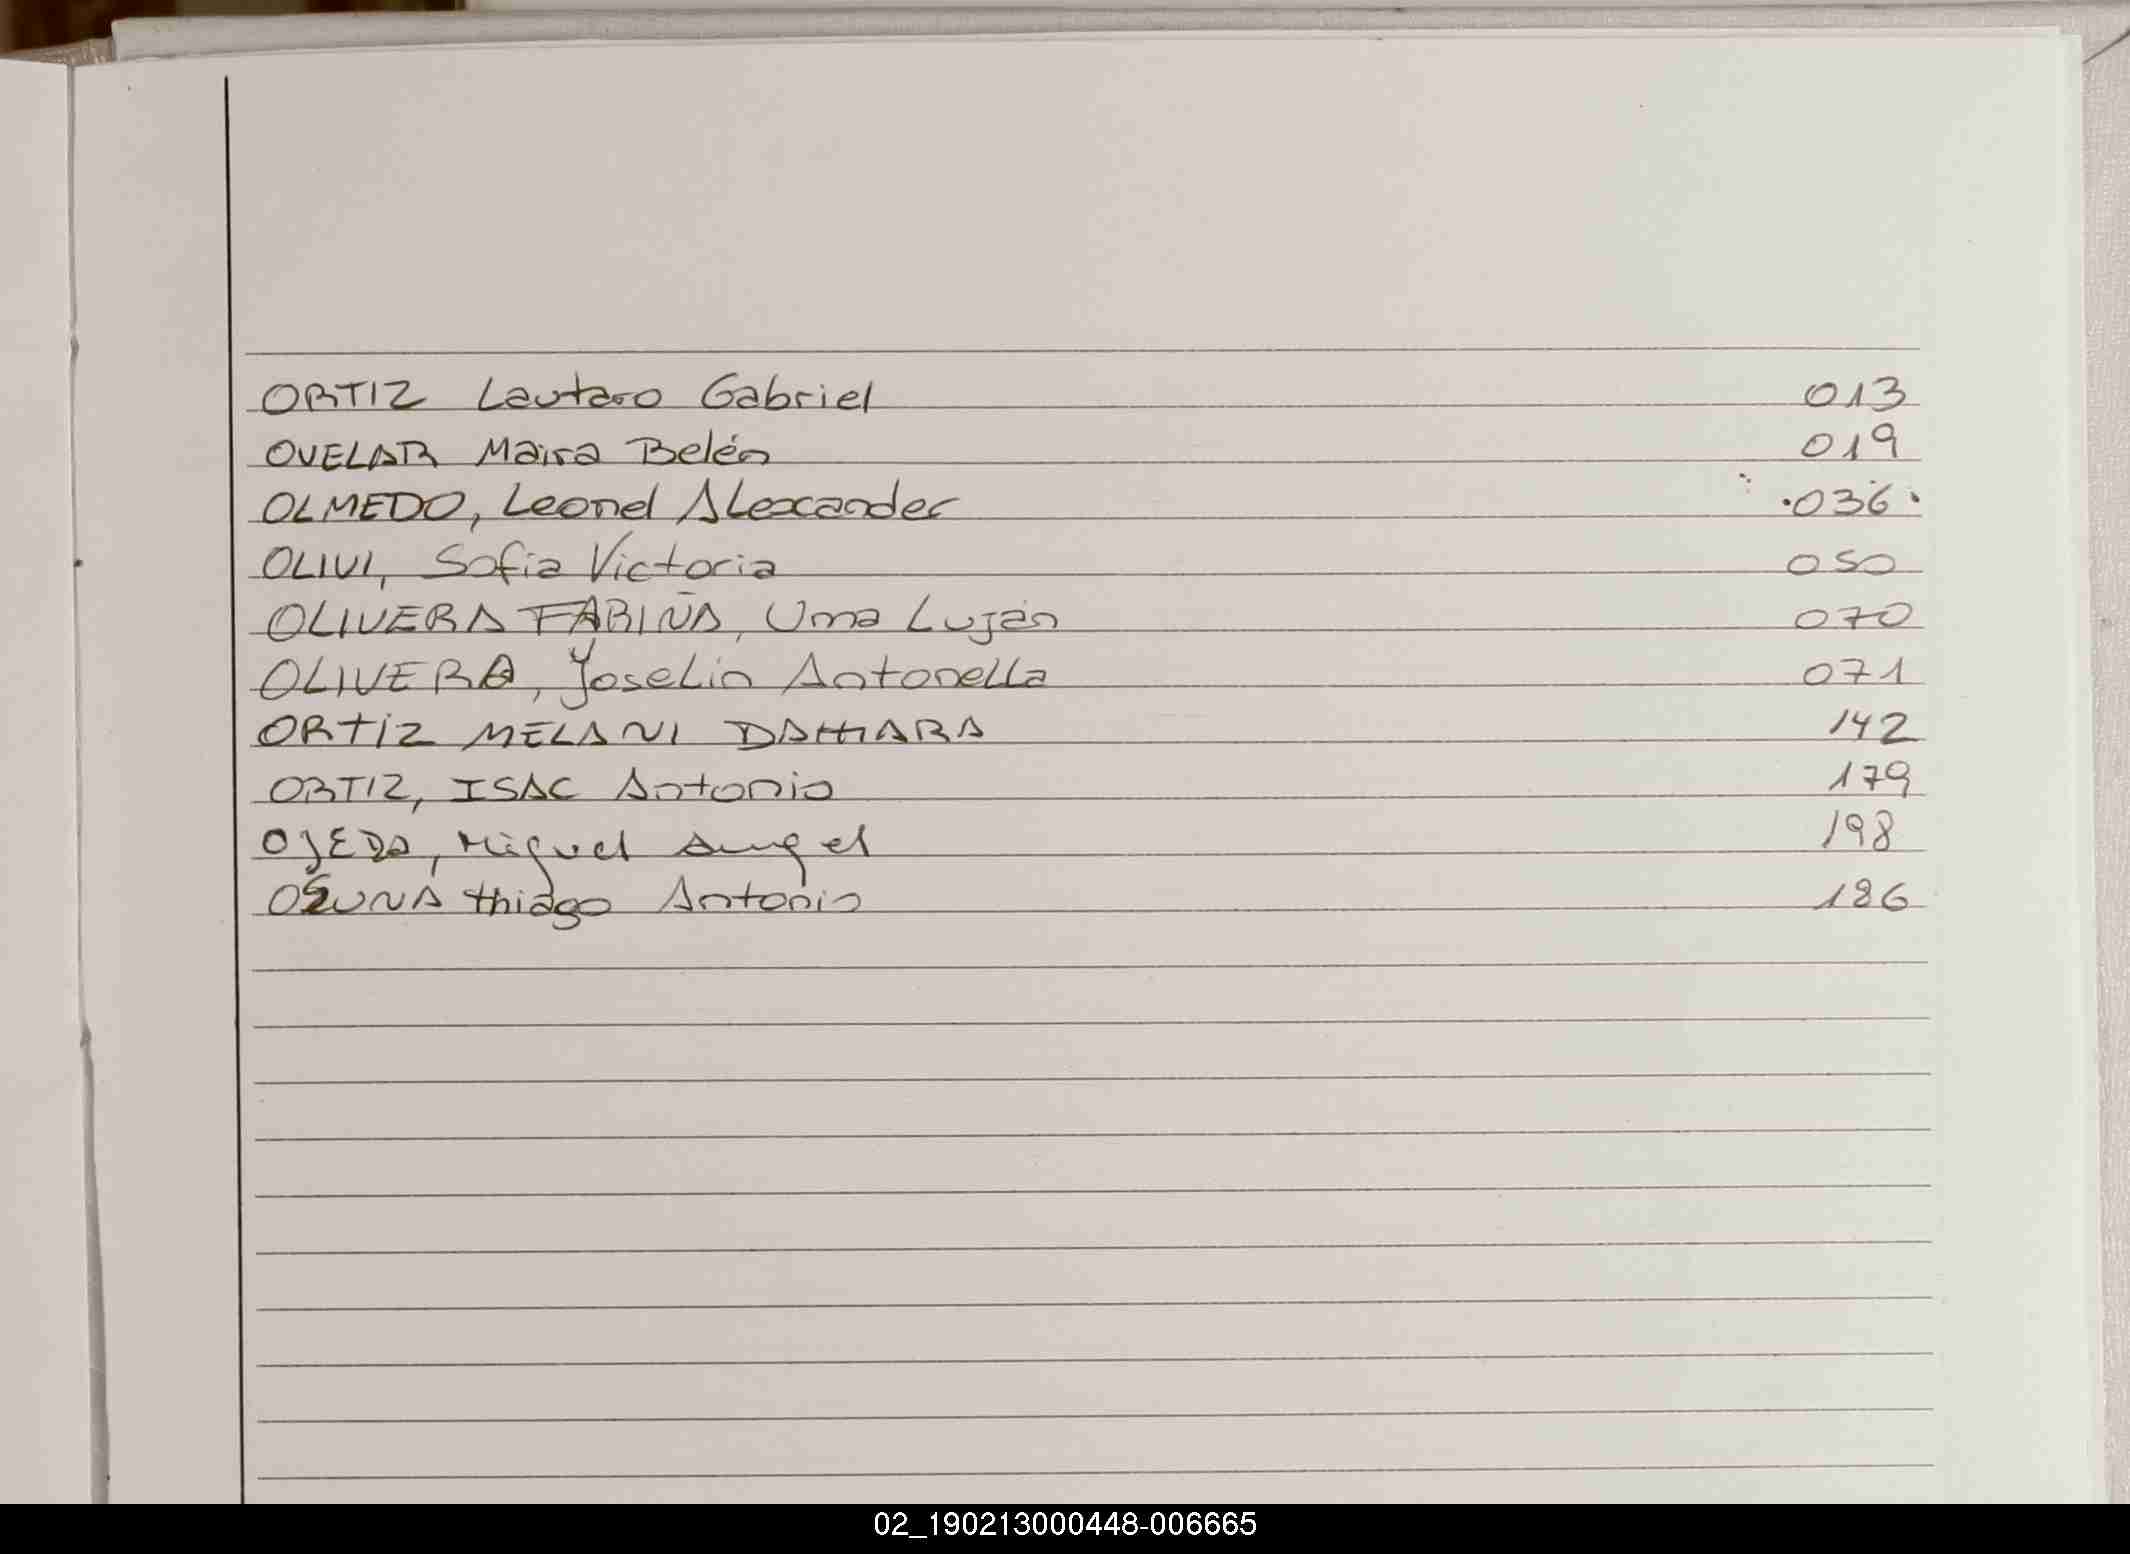 ORTIZ Lautaro Gabriel 013
OVELAR Maira Belén 019
OLMEDO, Leonel ALexander 036
OLIVI, Sofia Victoria 050
OLIVERA FARIÑA, Uma Luján 070
OLIVERA, Joselin Antonella 071
ORTIZ MELANI DAMARA 142
ORTIZ, ISAC Antonio 179
OJEDA, Miguel Angel 198
OSUNA thiago Antonio 186
02_190213000448-006665